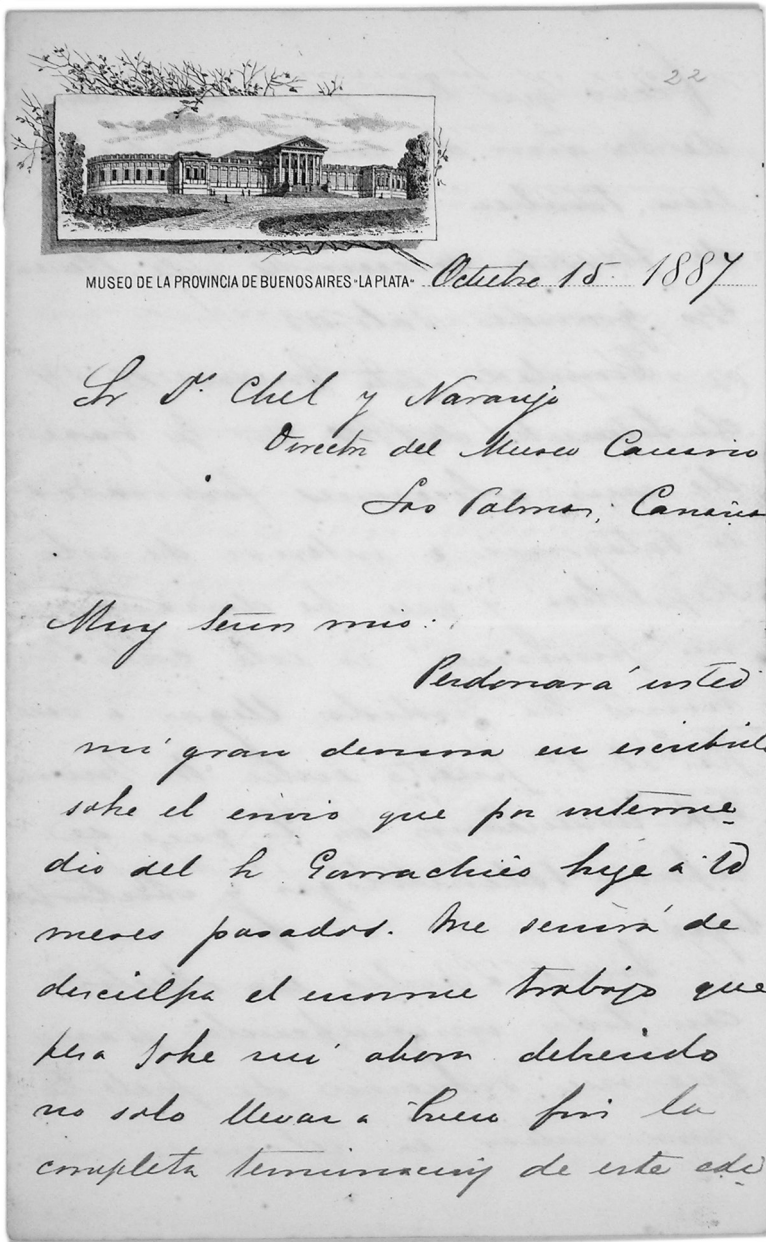 22
MUSEO DE LA PROVINCIA DE BUENOS AIRES-LA PLATA- Octubre 15 1887
Sr Dr. Chil y Naranjo
Director del Museo Canario
Las Palmas, Canarias
Muy Señor mio:
Perdonará usted
mi gran demora en escribirle
sobre el envio que por interme-
dio del Sr Garrachico hize á Vd
meses pasados. Me servirá de
disculpa el enorme trabajo que
pesa sobre mí ahora debiendo
no solo llevar a buen fin la
completa terminacion de este edi-